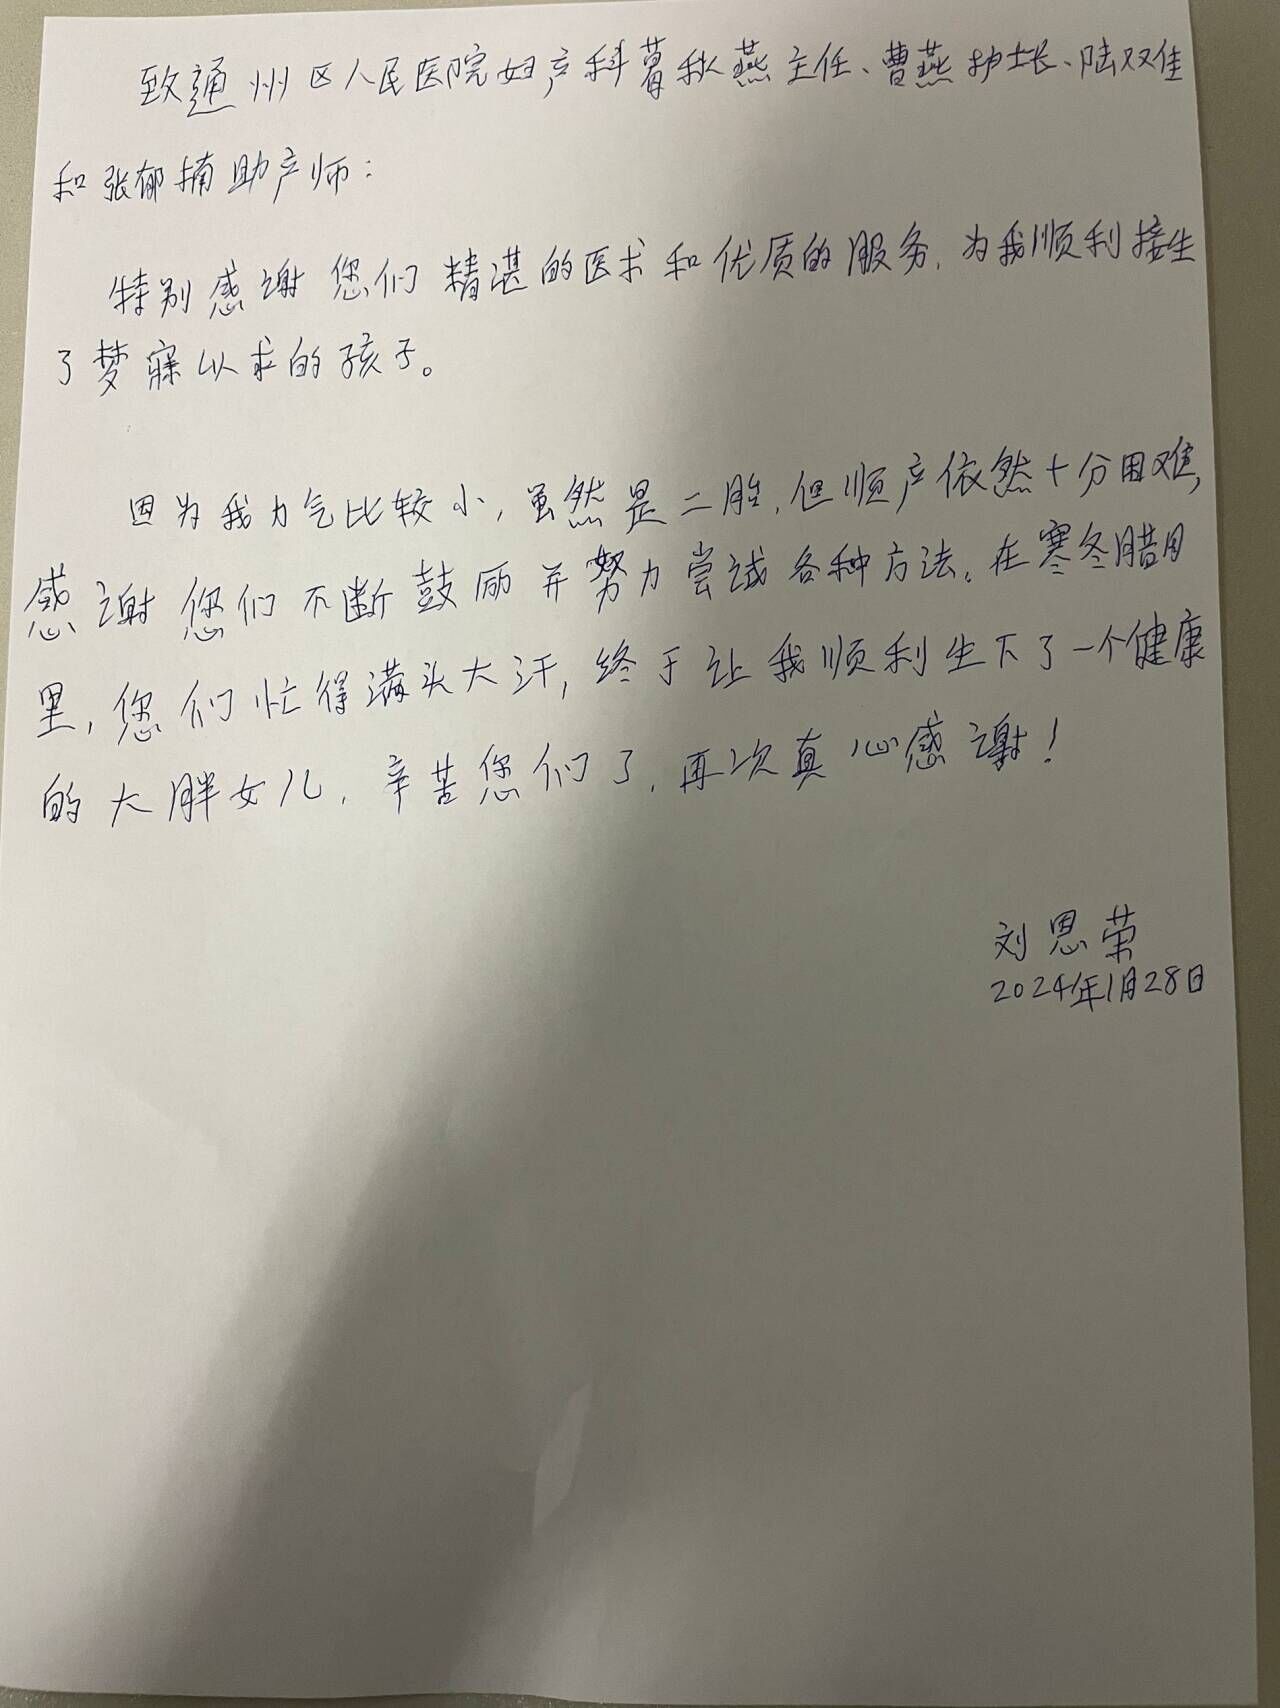 致通州区人民医院妇产科葛秋燕主任、曹燕护士长、陆双佳
和张郁楠助产师：
特别感谢您们精湛的医术和优质的服务，为我顺利接生
了梦寐以求的孩子。
因为我力气比较小，虽然是二胎，但顺产依然十分困难，
感谢您们不断鼓励并努力尝试各种方法。在寒冬腊月
里，您们忙得满头大汗，终于让我顺利生下了一个健康
的大胖女儿，辛苦您们了，再次真心感谢！
刘恩荣
2024年1月28日